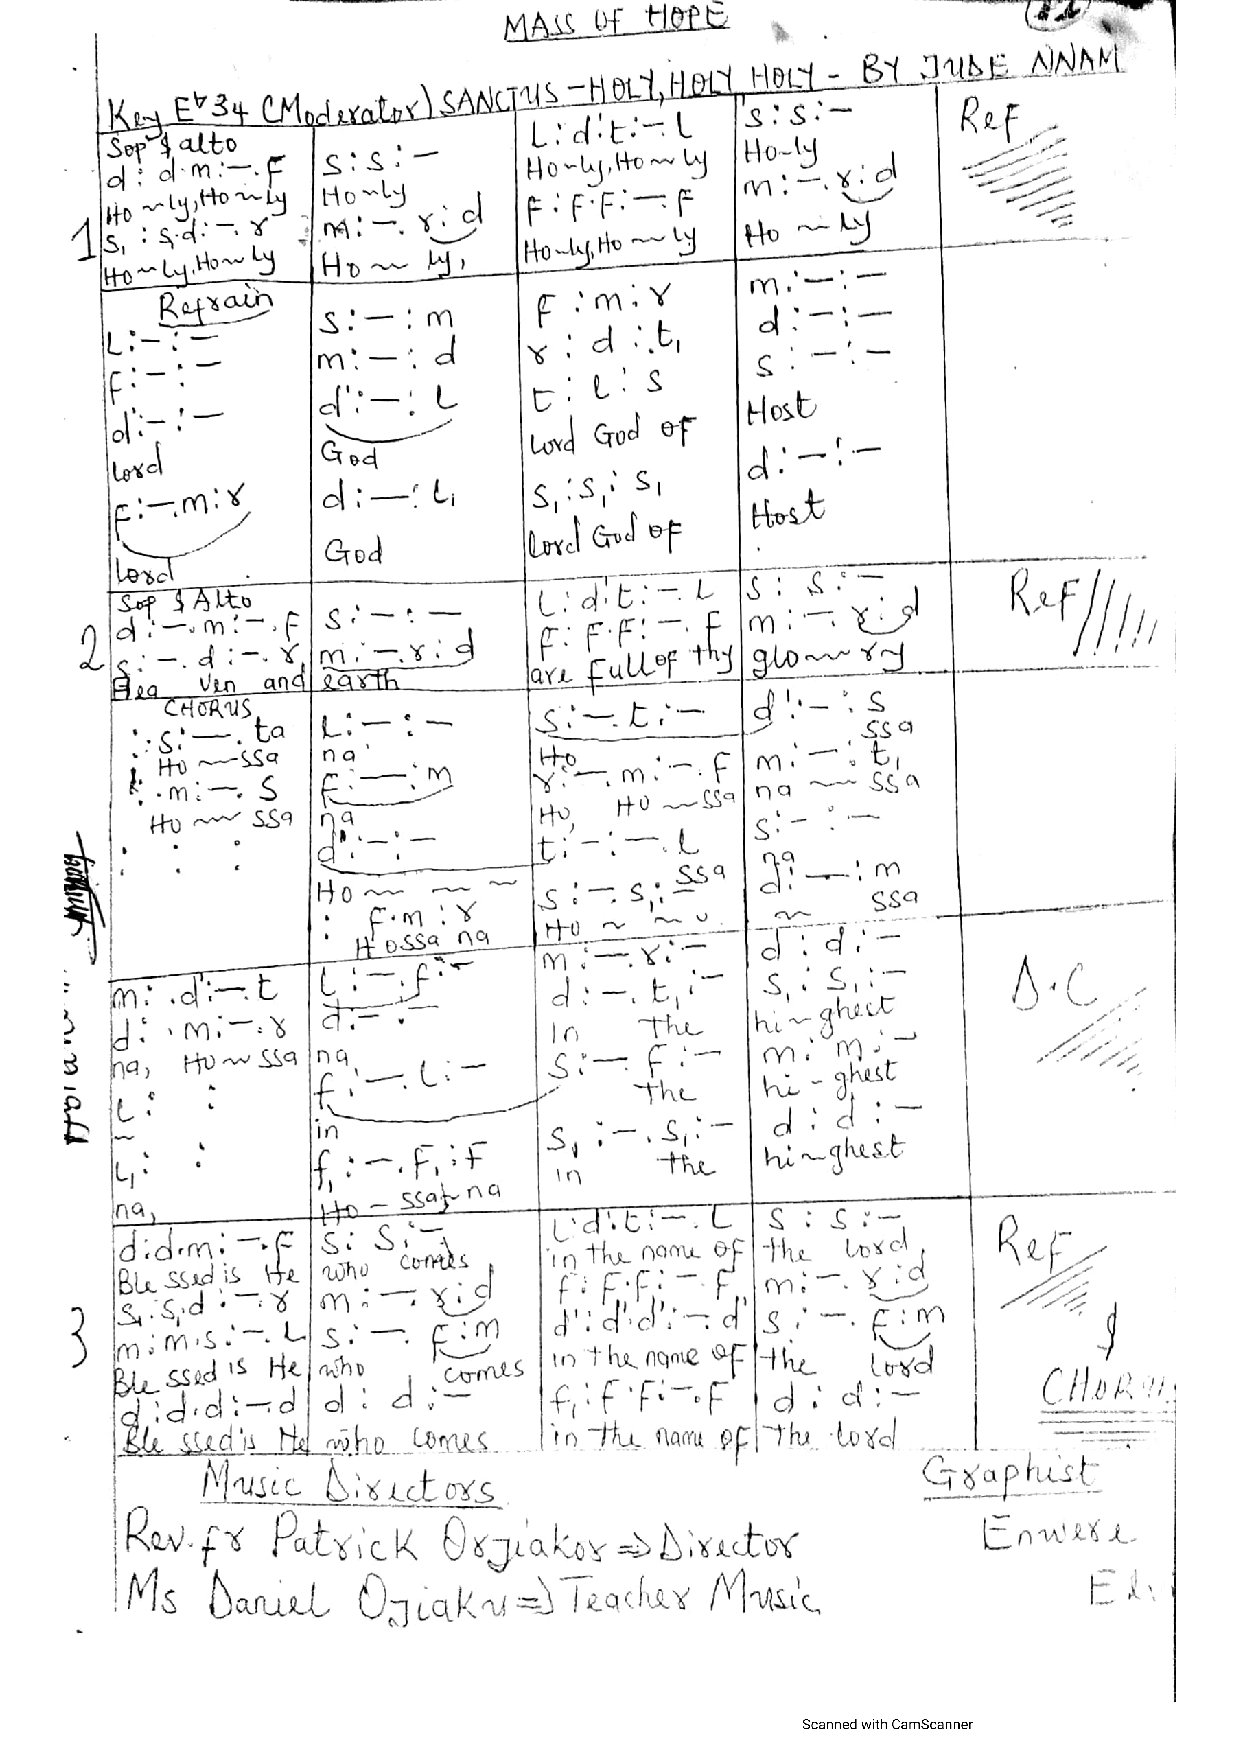 MASS OF HOPE
Key E♭ 34 (Moderator) SANCTUS - HOLY, HOLY HOLY - BY JUDE NNAM
1
Sop $ alto
d : d.m : — . F
Ho ~ ly, Ho ~ ly
s₁ : s₁.d : — . r
Ho ~ ly, Ho ~ ly
s : s : —
Ho ~ ly
m : — . r : d
Ho ~ ly,
L : d'.t : — . L
Ho ~ ly, Ho ~ ly
F : F.F : — . F
Ho ~ ly, Ho ~ ly
s : s : —
Ho ~ ly
m : — . r : d
Ho ~ ly
Ref
Refrain
L : — : —
F : — : —
d' : — : —
lord
F : — . m : r
lord
s : — : m
m : — : d
d' : — : L
God
d : — : L₁
God
F : m : r
r : d : t₁
t : L : s
lord God of
s₁ : s₁ : s₁
lord God of
m : — : —
d : — : —
s : — : —
Host
d : — : —
Host
2
Sop $ Alto
d : — . m : — . F
s : — . d : — . r
Hea ven and
s : — : —
m : — . r : d
earth
L : d'.t : — . L
F : F.F : — . F
are full of thy
s : s : —
m : — . r : d
glo ~ ry
Ref
CHORUS
: s : — . ta
Ho ~ ssa
: . m : — . s
Ho ~ ssa
: : :
L : — : —
na
F : — : m
na
d' : — : —
Ho ~ ~ ~
: F.m : r
Hossa na
s : — . t : —
Ho
r : — . m : — . F
Ho, Ho ~ ssa
t : — : — . L
ssa
s : — . s₁ : —
Ho ~ ~
d' : — : s
ssa
m : — : t₁
na ~ ssa
s : — : —
na
d : — : m
~ ssa
m : . d' : — . t
d : . m : — . r
na, Ho ~ ssa
L : :
~
L₁ : :
na,
L : — . F : —
d : — : —
na,
f : — . L : —
in
f₁ : — . F₁ : F
Ho - ssa - na
m : — . r : —
d : — . t₁ : —
In the
s : — . F : —
the
s₁ : — . s₁ : —
in the
d : d : —
s₁ : s₁ : —
hi ~ ghest
m : m : —
hi - ghest
d : d : —
hi ~ ghest
D.C
3
d : d.m : — . F
Ble ssed is He
s₁ : s₁.d : — . r
m : m.s : — . L
Ble ssed is He
d : d.d : — . d
Ble ssed is He
s : s : —
who comes
m : — . r : d
s : — . F : m
who comes
d : d : —
who comes
L : d'.t : — . L
in the name of
f : F.F : — . F
d' : d'.d' : — . d'
in the name of
f₁ : f.F : — . F
in the name of
s : s : —
the lord,
m : — . r : d
s : — . F : m
the lord
d : d : —
the lord
Ref
$
CHORUS
Music Directors
Rev. fr Patrick Orjiakor ⇒ Director
Ms Daniel Ojiaku ⇒ Teacher Music
Graphist
Enwere
Scanned with CamScanner